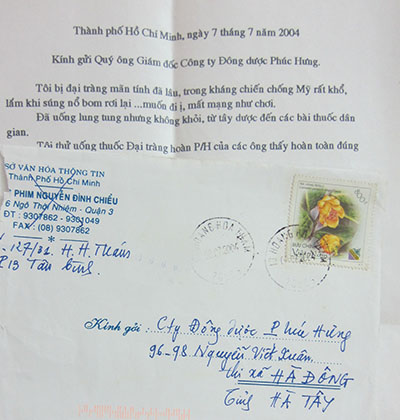 Thành phố Hồ Chí Minh, ngày 7 tháng 7 năm 2004
Kính gửi Quý ông Giám đốc Công ty Đông dược Phúc Hưng.
Tôi bị đại tràng mãn tính đã lâu, trong kháng chiến chống Mỹ rất khổ,
lắm khi súng nổ bom rơi lại ...muốn đi ị, mất mạng như chơi.
Đã uống lung tung nhưng không khỏi, từ tây dược đến các bài thuốc dân
gian.
Tôi thử uống thuốc Đại tràng hoàn P/H của các ông thấy hoàn toàn đúng
SỞ VĂN HÓA THÔNG TIN
Thành Phố Hồ Chí Minh
PHIM NGUYỄN ĐÌNH CHIỂU
6 Ngô Thời Nhiệm - Quận 3
ĐT : 9307862 - 9301049
FAX : (08) 9307862
127/31 H. H. Thám
P13 Tân Bình
HOANG HOA THAM
Kính gửi : Cty Đông dược Phúc Hưng
96-98 Nguyễn Viết Xuân
thị xã HÀ ĐÔNG
Tỉnh HÀ TÂY